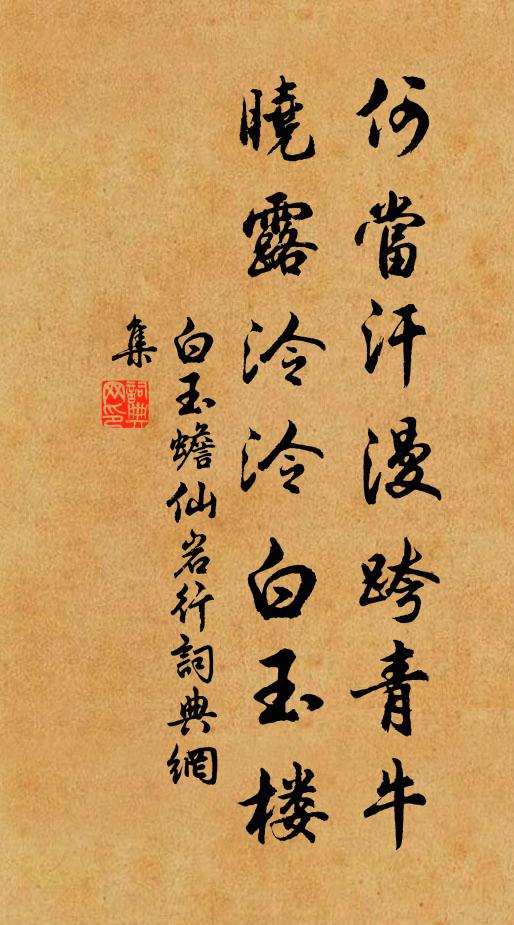 何當汗漫跨青牛
曉露泠泠白玉楼
白玉蟾仙岩行詞典網
集
詞典
网印